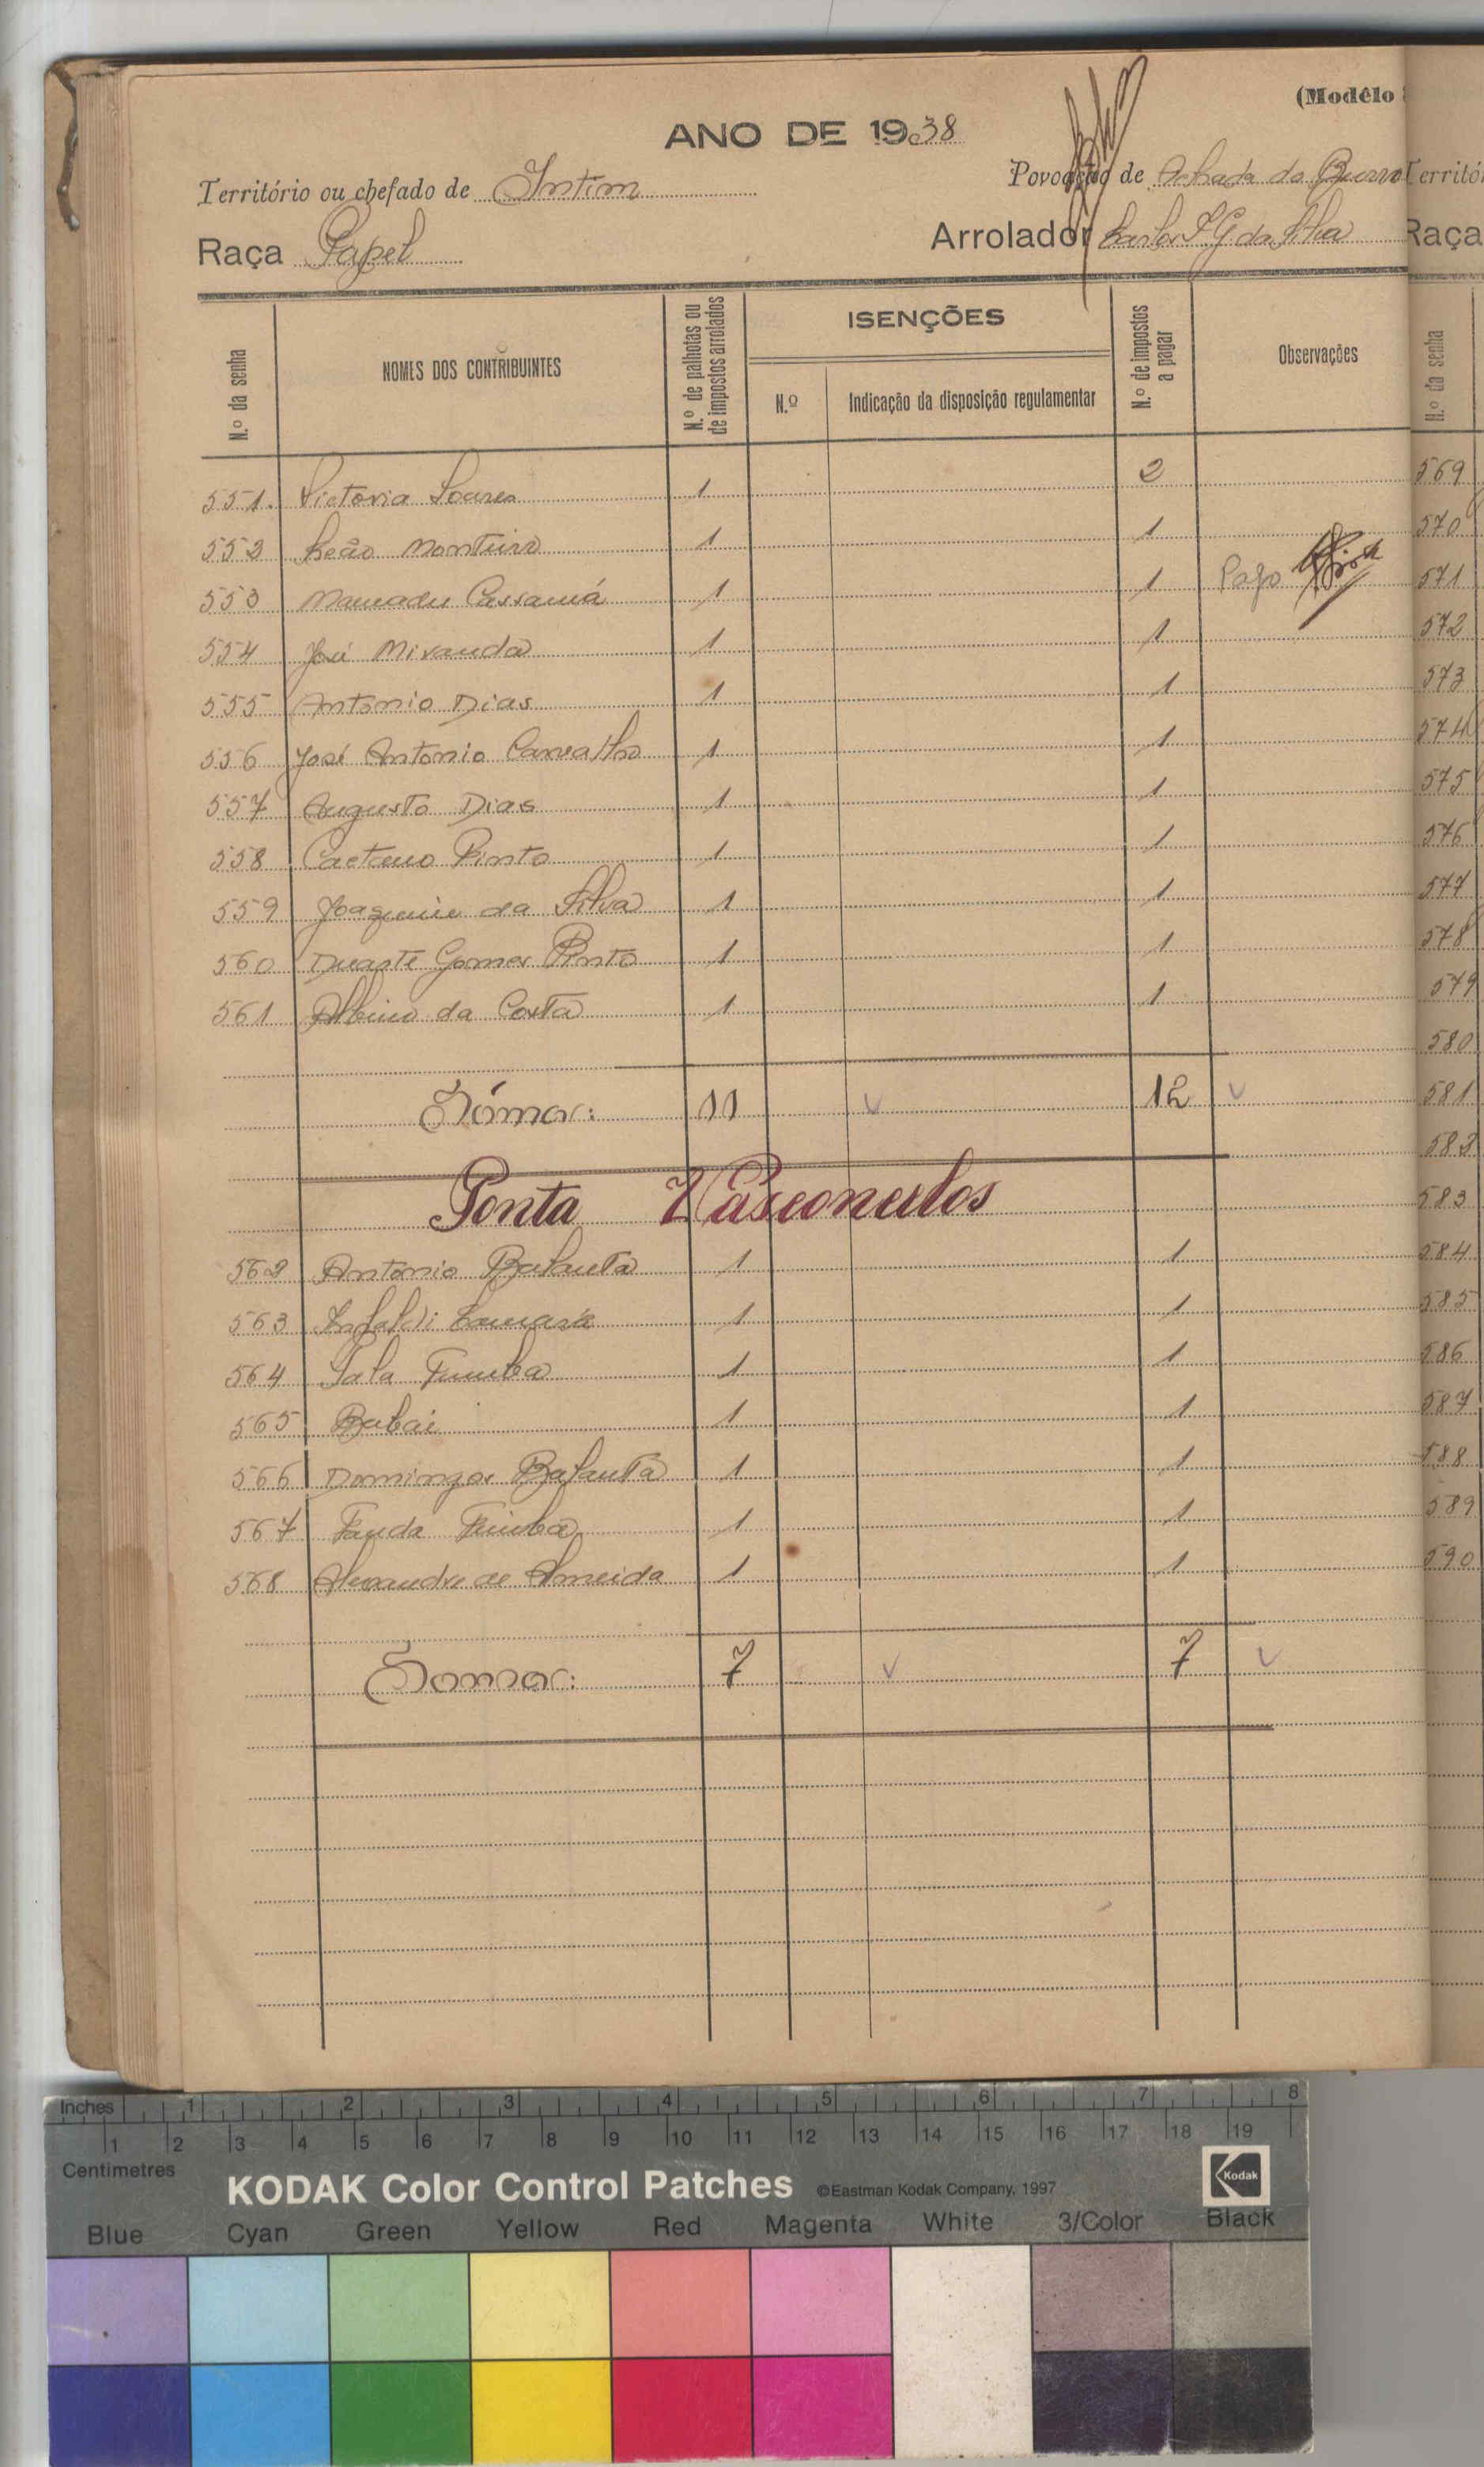 (Modêlo
ANO DE 1938
Território ou chefado de Intim
Povoação de Achada do Burro
Raça Papel
Arrolador Carlos F G da Silva
N.º da senha
NOMES DOS CONTRIBUINTES
N.º de palhotas ou de impostos arrolados
ISENÇÕES
N.º
Indicação da disposição regulamentar
N.º de impostos a pagar
Observações
551. Victoria Soares 1 2
552 Leão Monteiro 1 1
553 Mamadu Cassamá 1 1 Pago
554 José Miranda 1 1
555 Antonio Dias 1 1
556 José Antonio Carvalho 1 1
557 Augusto Dias 1 1
558 Caetano Pinto 1 1
559 Joaquim da Silva 1 1
560 Duarte Gomes Pinto 1 1
561 Albino da Costa 1 1
Sôma: 11 12
Ponta Vasconcelos
562 Antonio Balanta 1 1
563 Camará 1 1
564 1 1
565 Babai 1 1
566 Domingos Balanta 1 1
567 1 1
568 Alexandre de Almeida 1 1
Soma: 7 7
Territó
Raça
N.º da senha
569
570
571
572
573
574
575
576
577
578
579
580
581
583
583
584
585
586
587
588
589
590
Inches 1 2 3 4 5 6 7 8
1 2 3 4 5 6 7 8 9 10 11 12 13 14 15 16 17 18 19
Centimetres
KODAK Color Control Patches ©Eastman Kodak Company, 1997 Kodak
Blue Cyan Green Yellow Red Magenta White 3/Color Black